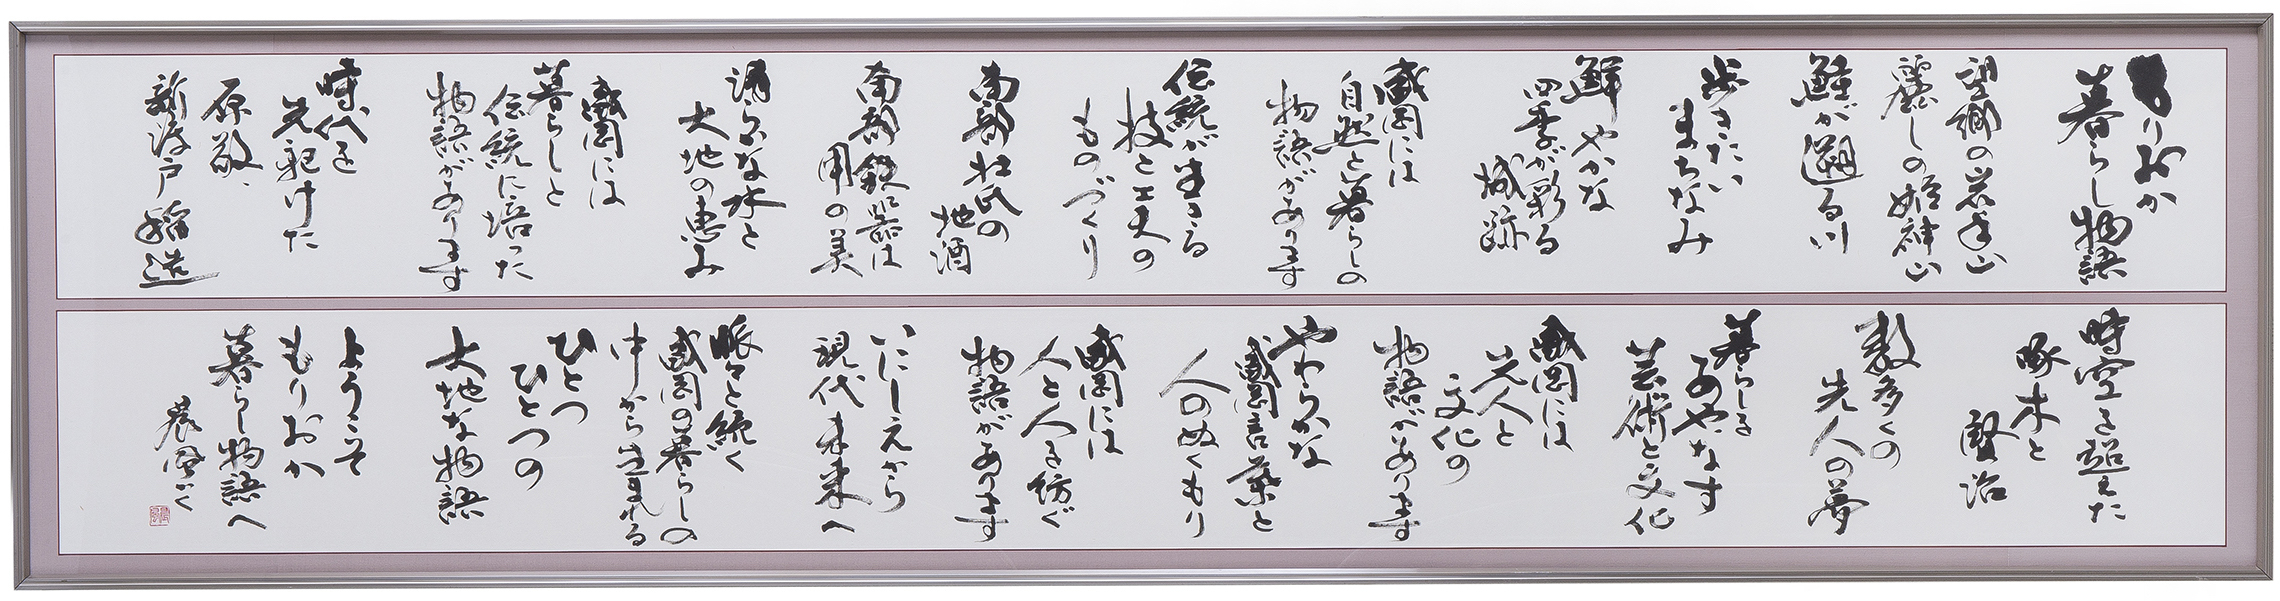 もりおか
暮らし物語
望郷の岩手山
麗しの姫神山
鮭が遡る川
歩きたい
まちなみ
鮮やかな
四季が彩る
城跡
盛岡には
自然と暮らしの
物語があります
伝統が生きる
技と工夫の
ものづくり
南部杜氏の
地酒
南部鉄器は
用の美
清らかな水と
大地の恵み
盛岡には
暮らしと
伝統に培った
物語があります
時代を
先駆けた
原敬、
新渡戸稲造
時空を超えた
啄木と
賢治
数多くの
先人の夢
暮らしを
あやなす
芸術と文化
盛岡には
先人と
文化の
物語があります
やわらかな
盛岡言葉と
人のぬくもり
盛岡には
人と人を紡ぐ
物語があります
いにしえから
現代未来へ
脈々と続く
盛岡の暮らしの
中から生まれる
ひとつ
ひとつの
大地な物語
ようこそ
もりおか
暮らし物語へ